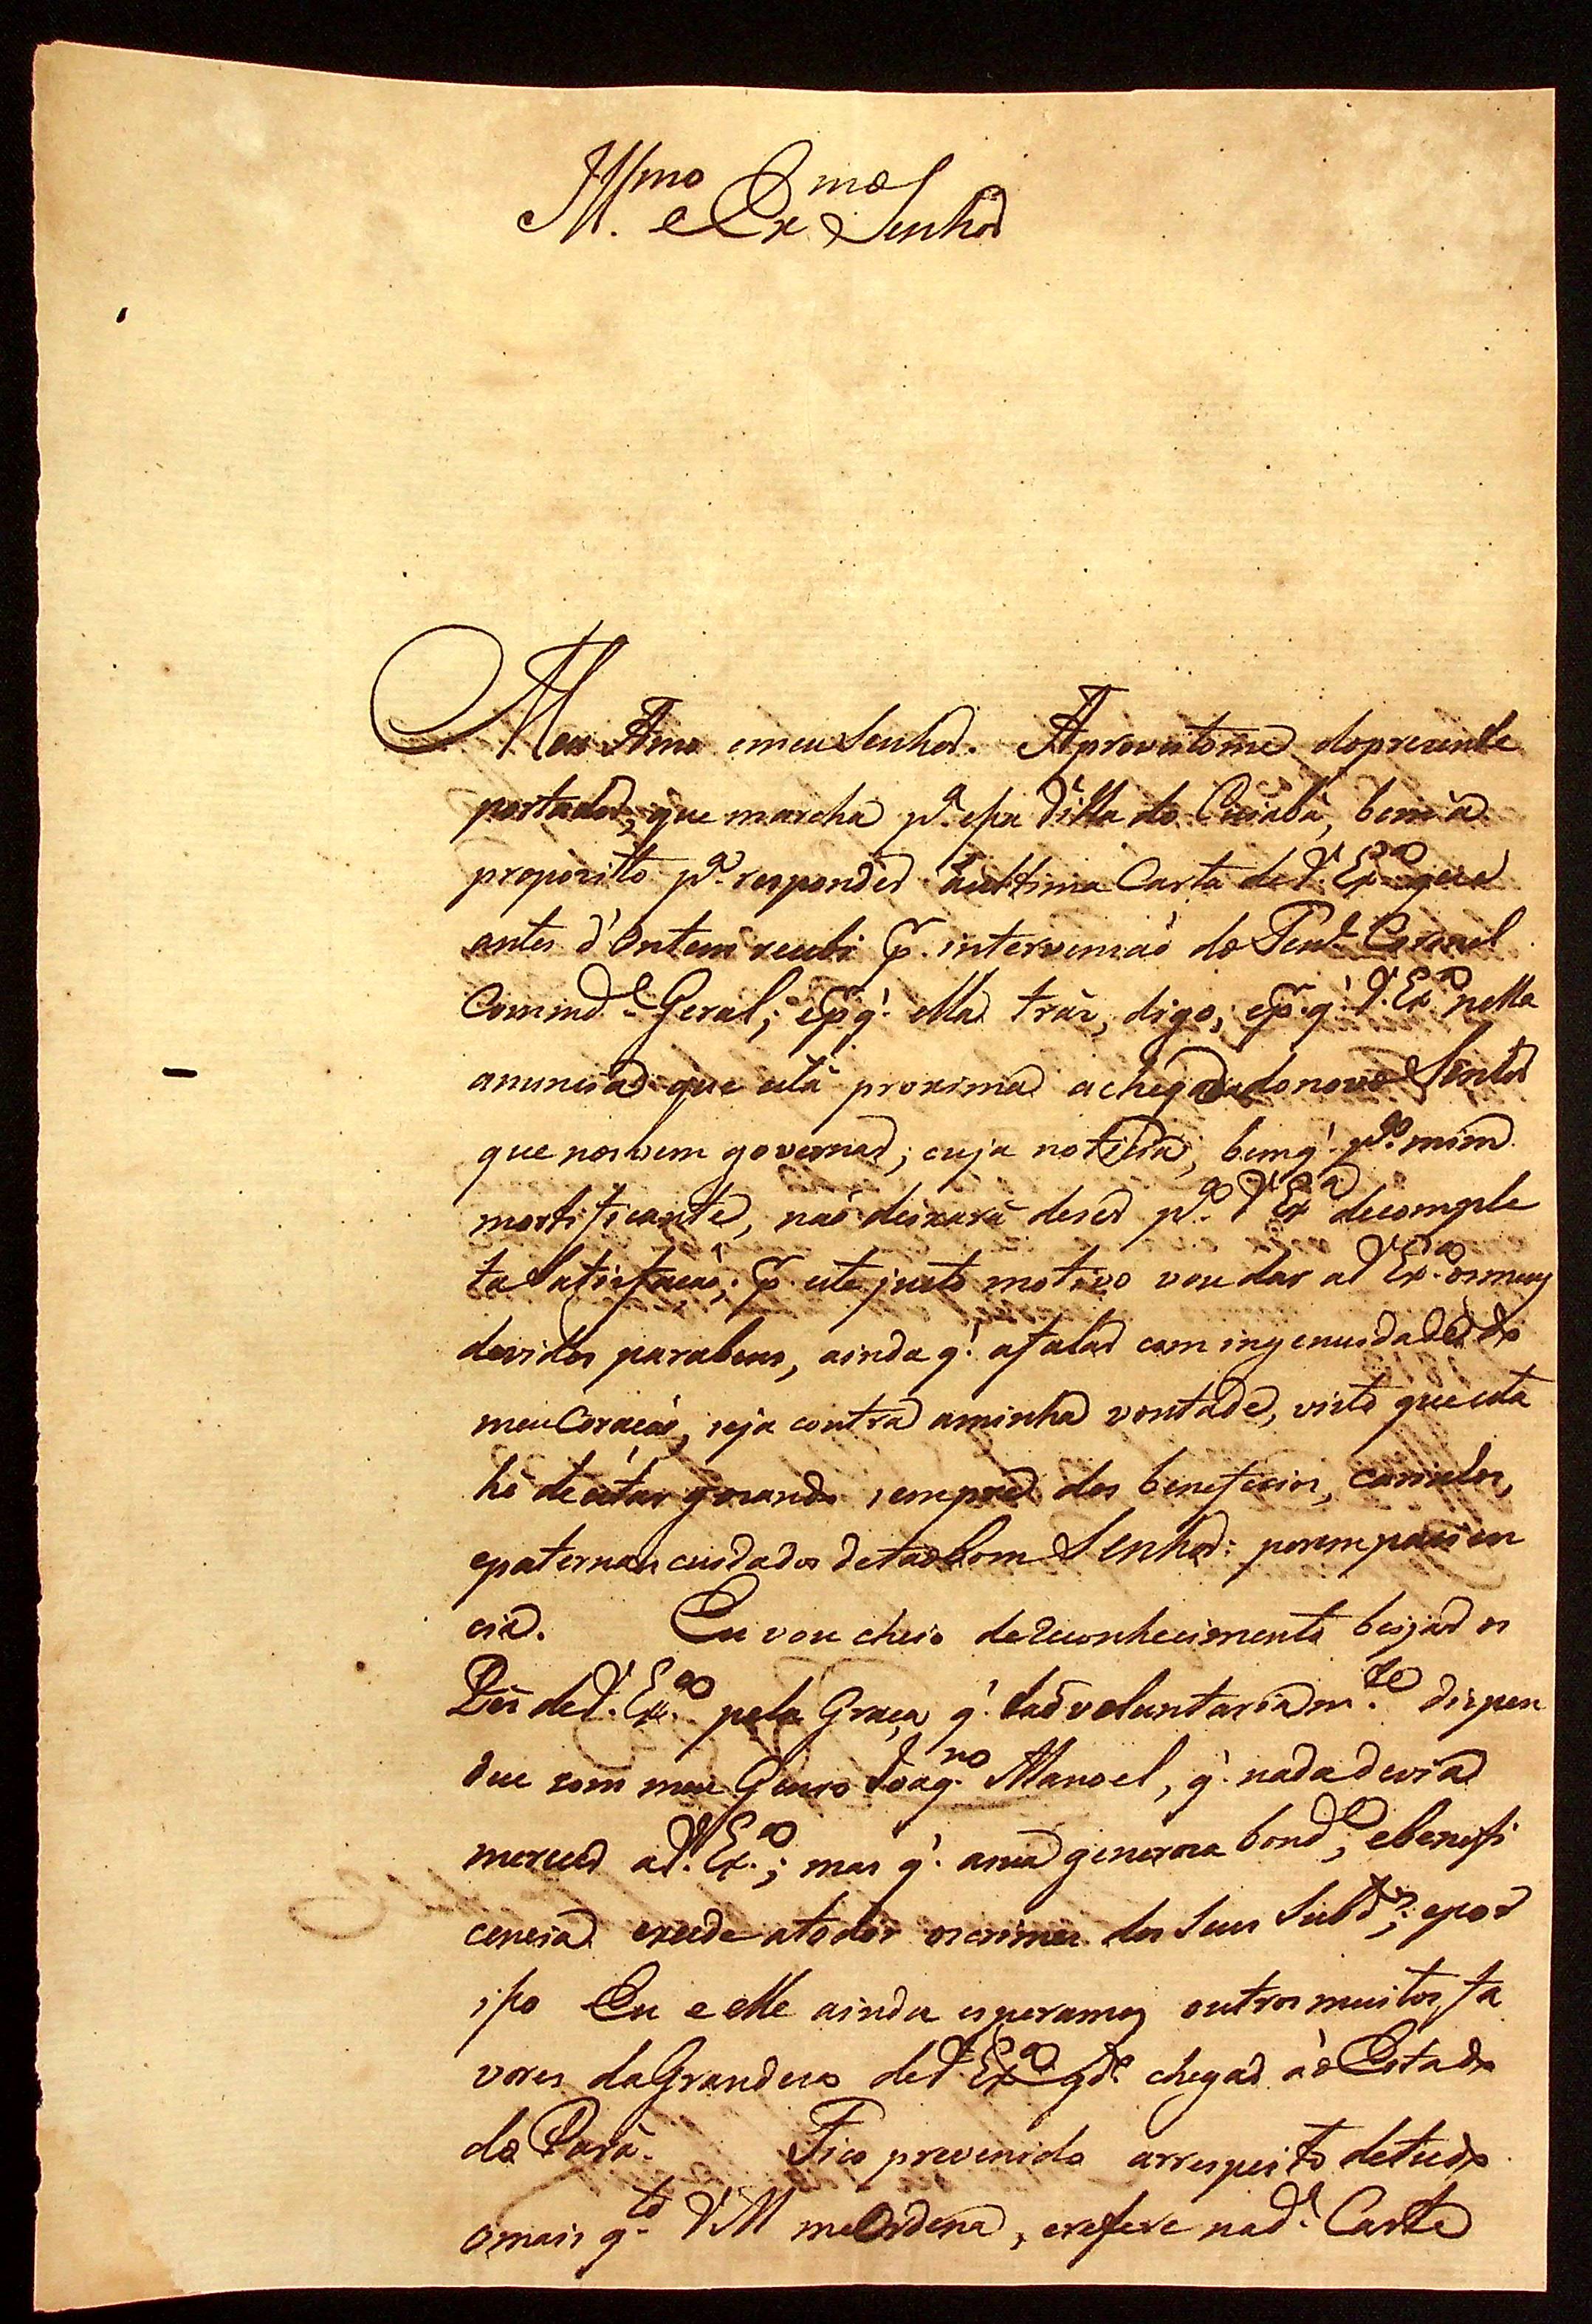 Ill.mo e Ex.mo Senhor
Meu Amo emeu Senhor. Aproveitome doprezente
portador, que marcha p.a essa Villa do Cuiabá, bem a
propozitto p.a responder áulttima Carta de V. Ex.a que
antes d'Ontem recebi p. intervensaõ do Ten.te Coronel
Commd.e Geral; ep q'. ella tráz, digo, ep. q'. V. Ex.a nella
anuncia que está proxima achegada donovo Senhor
que nosvem governar; cuja noticia, bemq'. p.a mim
mortificante, naõ deixará deser p.a V. Ex.a decomple
ta Satisfaçaõ; p. este justo motivo vou dar a V. Ex.a osmeus
devidos parabens, ainda q'. afalar com ingenuidade do
meu Coraçaõ, seja contra aminha vontade, visto que esta
hé de estar gozando sempre dos beneficios, carinhos,
epaternais cuidados detaõbom Senhor: porem pacien
cia. Eu vou cheio de reconhecimento beijar os
Pés de V. Ex.a pela Graça q'. taõ voluntariam.te dispen
deu com meu Genro Joaq.m Manoel, q'. nada devia
merecer aV. Ex.a; mas q'. asua generoza bond.e, ebenefi
cencia excede atodos oscrimes dos Seus Subd.os; epor
isso Eu e elle ainda esperamos outros muitos fa
vores daGrandeza de V. Ex.a qd.o chegar aõ Estado
do Pará. Fico prevenido arrespeito detudo
omais q.to V. M meOrdena, erefere nad.a Carta